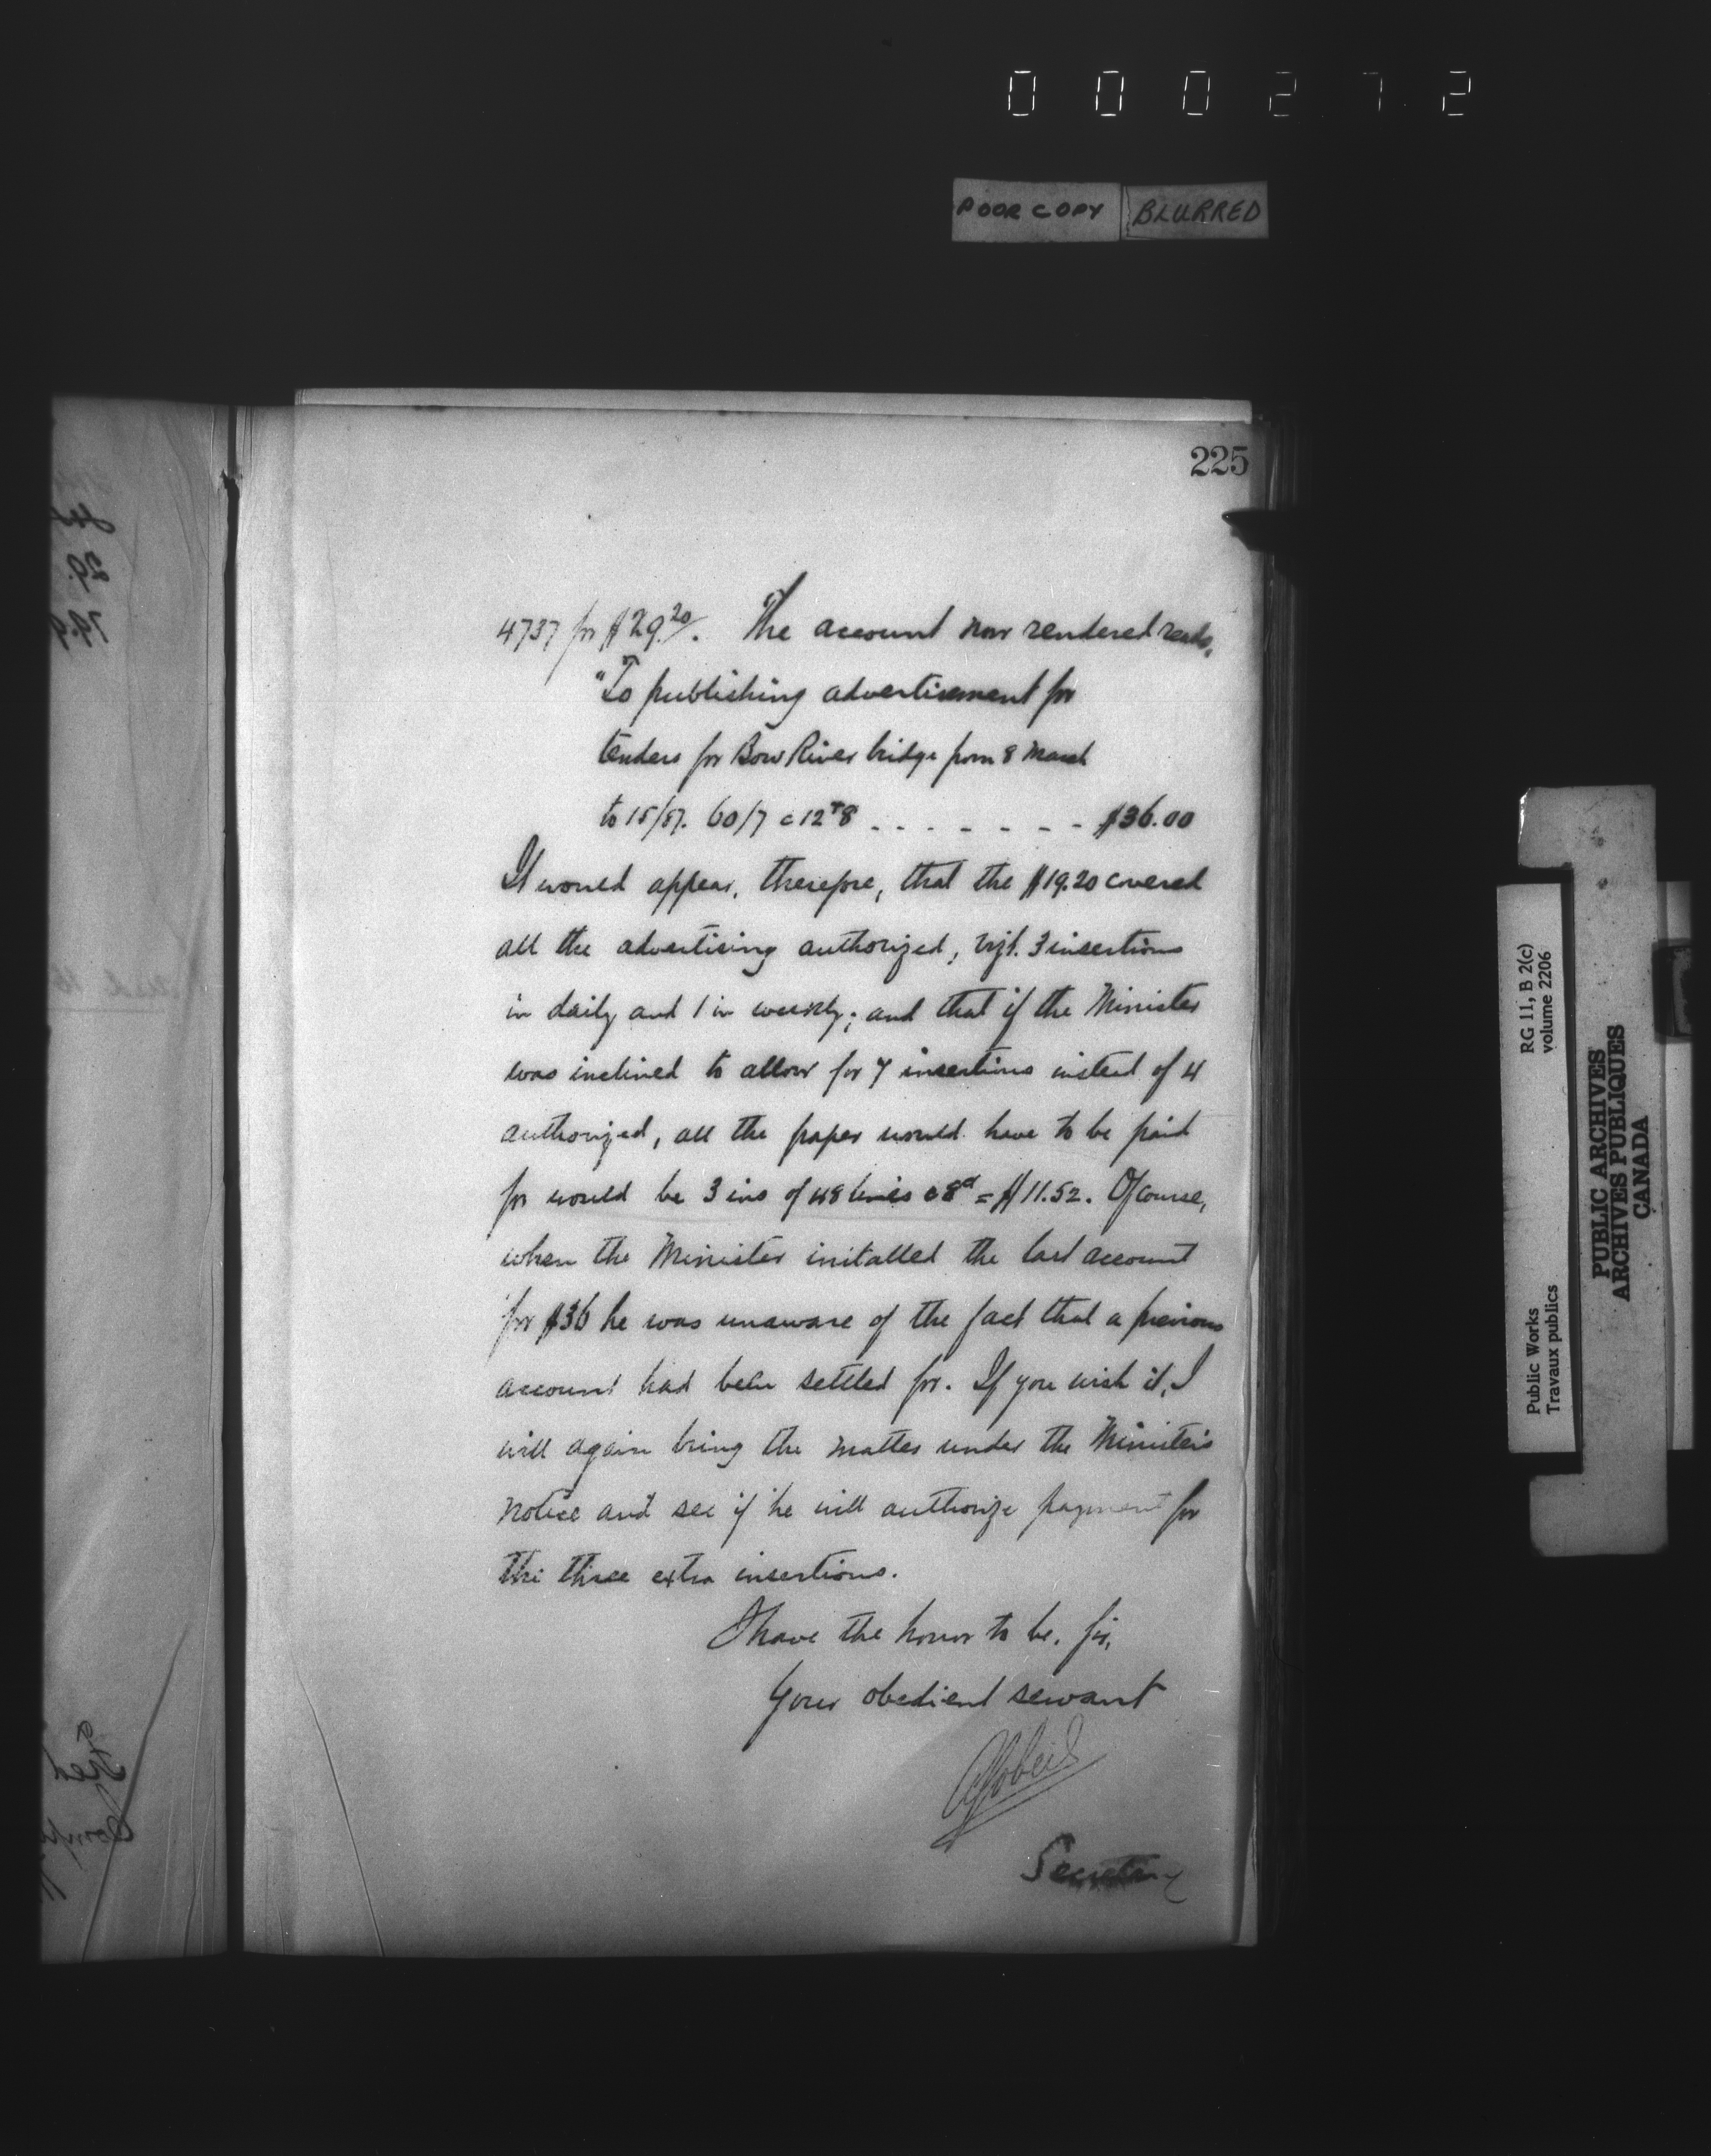 000272
POOR COPY BLURRED
225
4737 for $29.20/. The account now rendered reads,
"To publishing advertisement for
tenders for Bow River bridge from 8 March
to 15/87. 60/7 c 12 + 8 - - - - - - - $36.00
It would appear, therefore, that the $19.20 covered
all the advertising authorized, vizt. 3 insertions
in daily and 1 in weekly; and that if the Minister
was inclined to allow for 7 insertions instead of 4
authorized, all the paper would have to be paid
for would be 3 ins of 48 lines @ 8c = $11.52. Of course,
when the Minister initalled the last account
for $36 he was unaware of the fact that a previous
account had been settled for. If you wish it, I
will again bring the matter under the Minister's
notice and see if he will authorize payment for
the three extra insertions.
I have the honor to be, Sir,
Your obedient servant
Secretary
RG 11, B 2(c)
volume 2206
Public Works
Travaux publics
PUBLIC ARCHIVES
ARCHIVES PUBLIQUES
CANADA